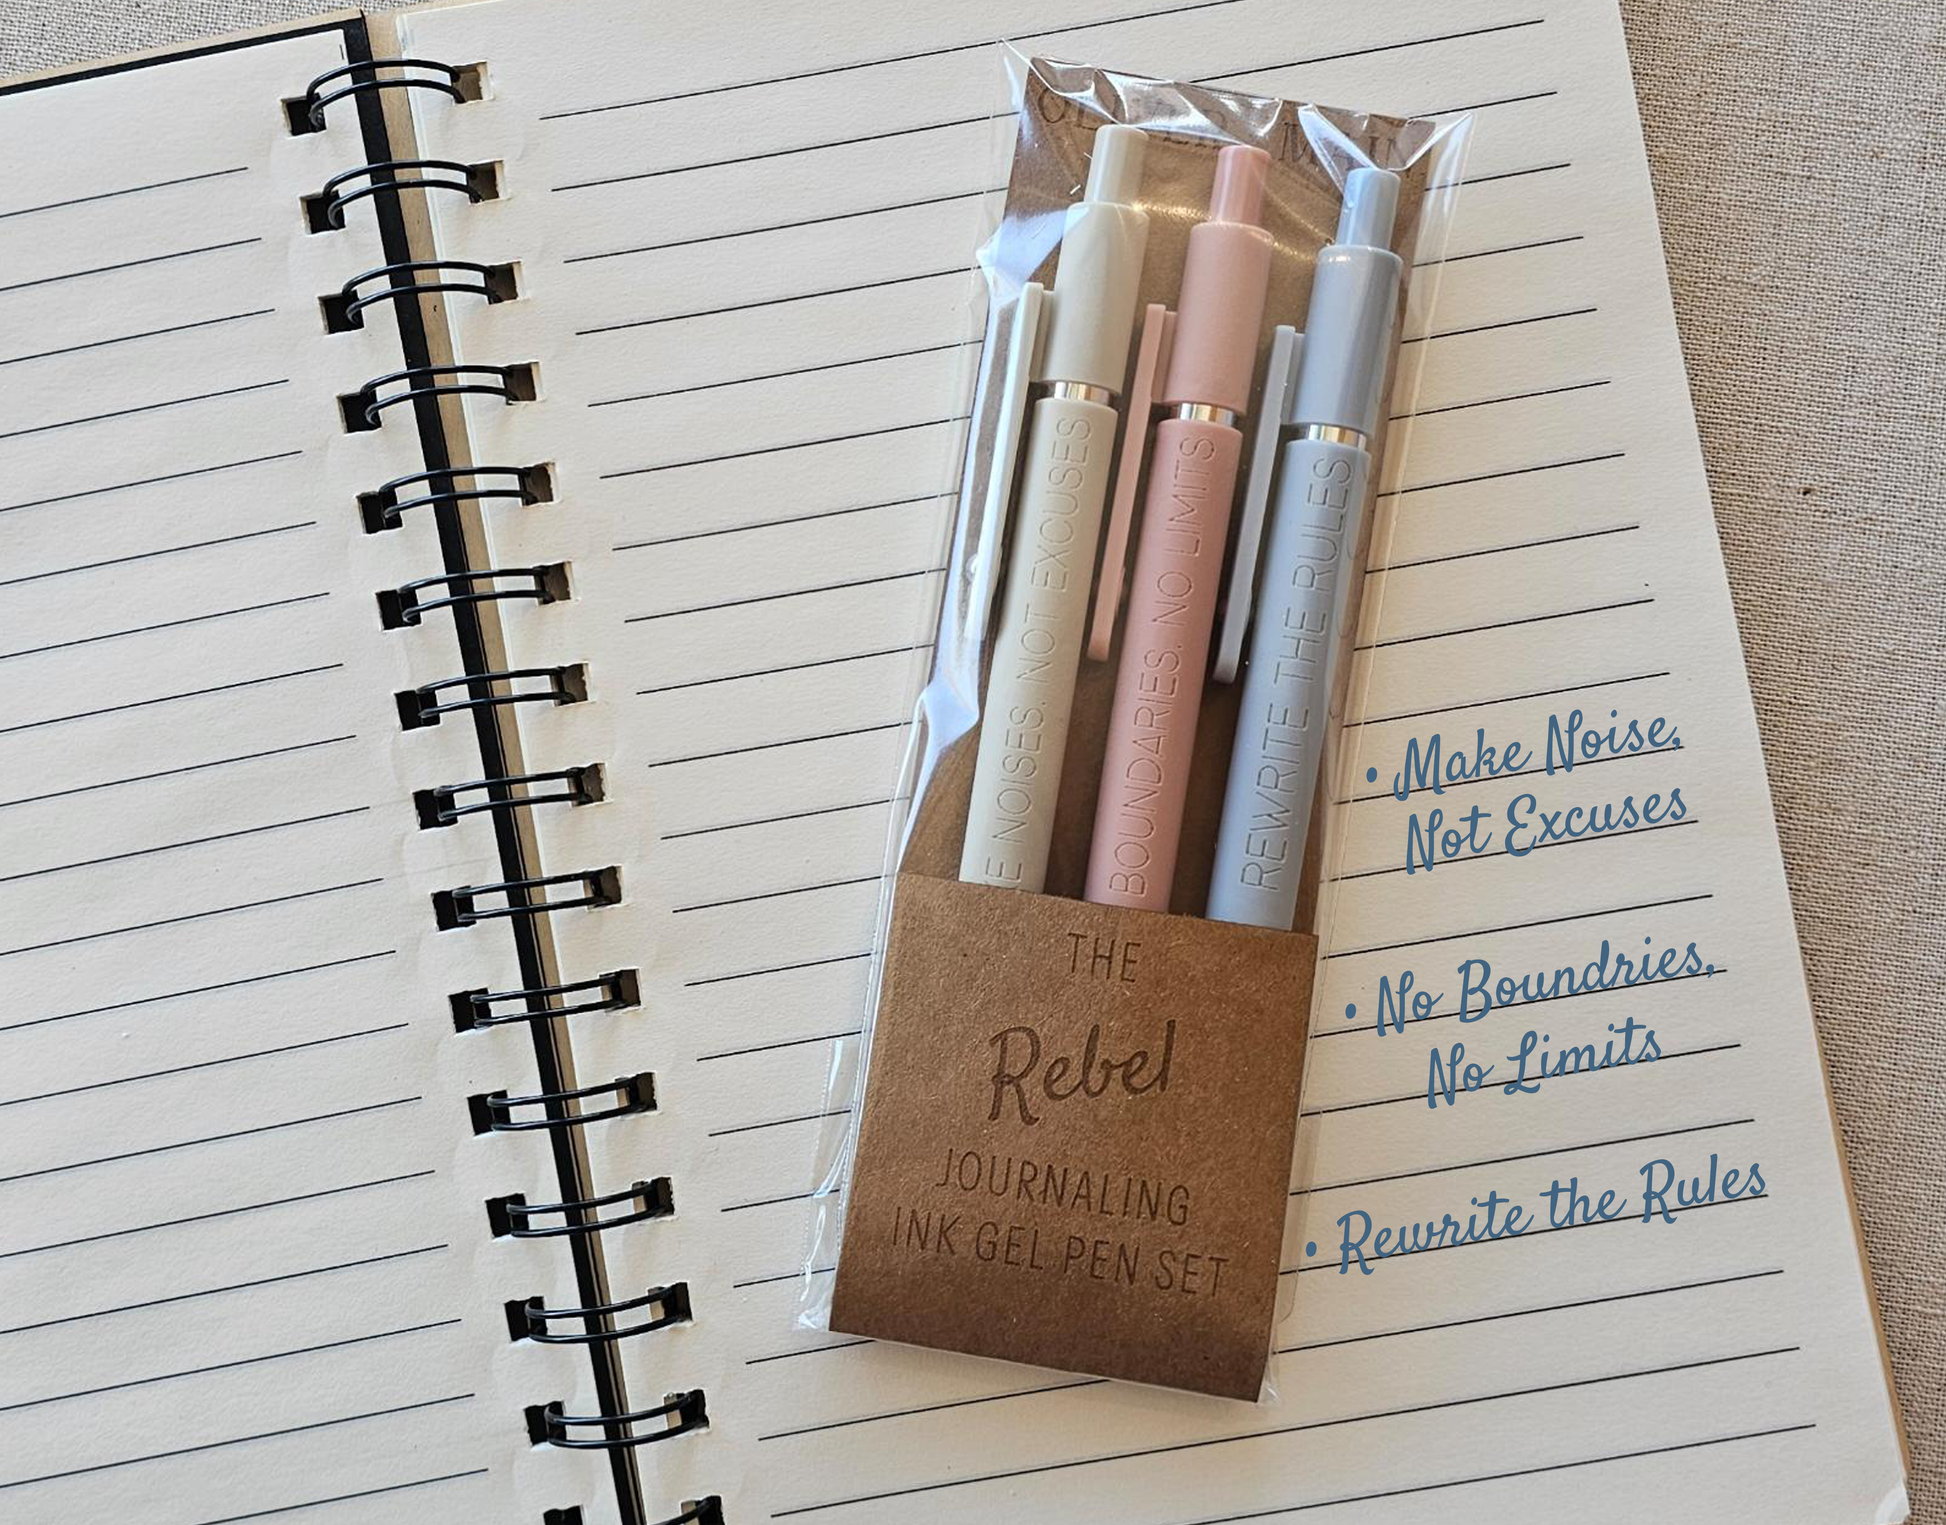 NOISES. NOT EXCUSES
BOUNDARIES. NO LIMITS
REWRITE THE RULES
THE
Rebel
JOURNALING
INK GEL PEN SET
• Make Noise,
Not Excuses
• No Boundries,
No Limits
• Rewrite the Rules